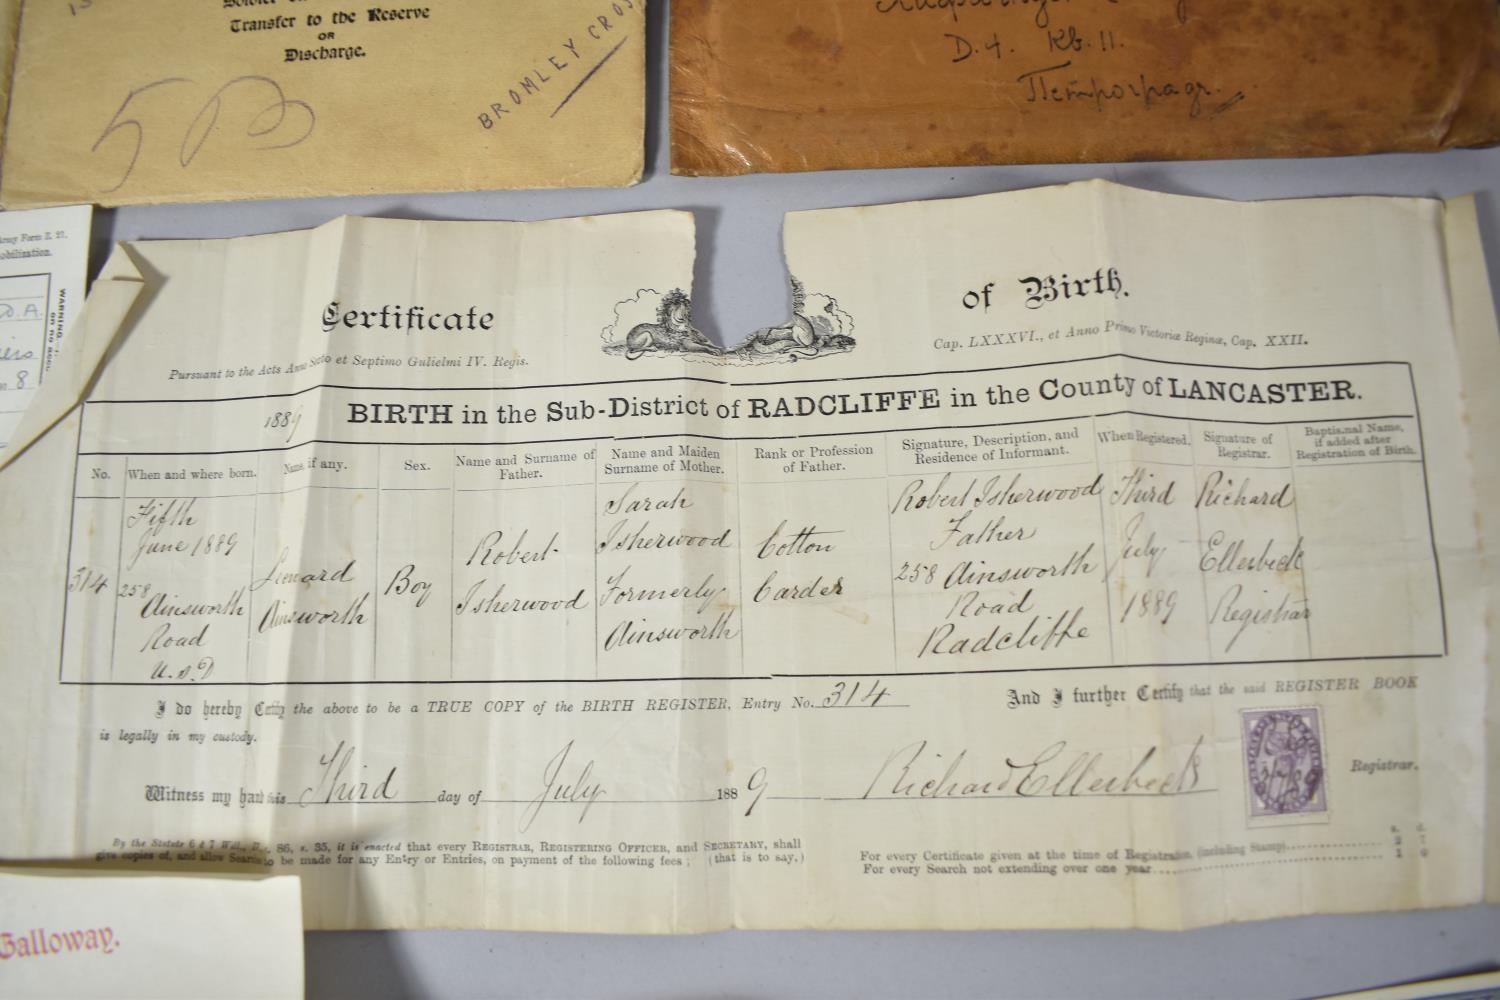 Transfer to the Reserve
OR
Discharge.
BROMLEY CROS
5
D. 4. Kb. 11.
Army Form Z. 21.
WARNING
8
Certificate of Birth.
Pursuant to the Acts Anno Sexto et Septimo Gulielmi IV. Regis. Cap. LXXXVI., et Anno Primo Victoriæ Reginæ, Cap. XXII.
1889 BIRTH in the Sub-District of RADCLIFFE in the County of LANCASTER.
No.
When and where born.
Name, if any.
Sex.
Name and Surname of
Father.
Name and Maiden
Surname of Mother.
Rank or Profession
of Father.
Signature, Description, and
Residence of Informant.
When Registered.
Signature of
Registrar.
Baptismal Name,
if added after
Registration of Birth.
314
Fifth
June 1889
258
Ainsworth
Road
U.S.D
Leonard
Ainsworth
Boy
Robert
Isherwood
Sarah
Isherwood
Formerly
Ainsworth
Cotton
Carder
Robert Isherwood
Father
258 Ainsworth
Road
Radcliffe
Third
July
1889
Richard
Ellerbeck
Registrar
I do hereby Certify the above to be a TRUE COPY of the BIRTH REGISTER, Entry No. 314 And I further Certify that the said REGISTER BOOK
is legally in my custody.
Witness my hand this Third day of July 1889 Richard Ellerbeck Registrar.
By the Statute 6 & 7 Will., 86, s. 35, it is enacted that every REGISTRAR, REGISTERING OFFICER, and SECRETARY, shall
give copies of, and allow Searches to be made for any Entry or Entries, on payment of the following fees; (that is to say,)
s. d.
For every Certificate given at the time of Registration, (including Stamp) 2 7
For every Search not extending over one year 1 0
Galloway.